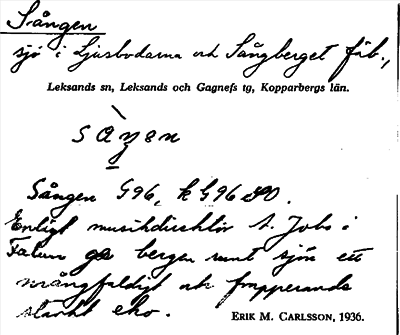 Sången
sjö i Ljusbodarna och Sångberget fäb.,
Leksands sn, Leksands och Gagnefs tg, Kopparbergs län.
sàŋen
Sången G96, k G96 SO.
Enligt musikdirektör A. Jobs i
Falun ge bergen samt sjön ett
mångfaldigt och frapperande
starkt eko.
ERIK M. CARLSSON, 1936.